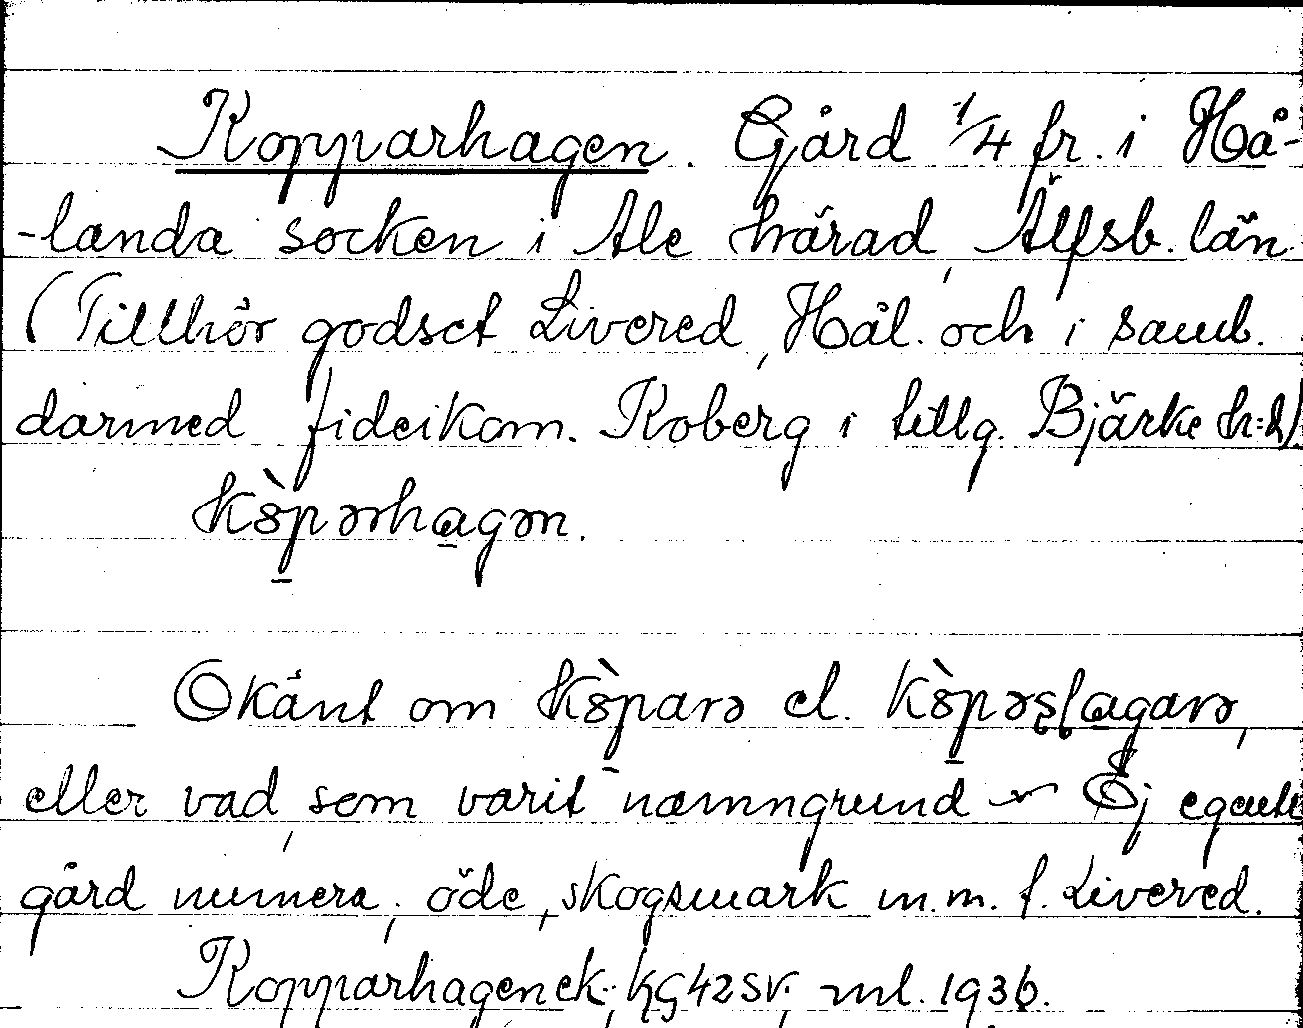 Kopparhagen. Gård 1/4 fr. i Hå-
-landa socken i Ale härad, Älfsb. län
(Tillhör godset Livered, Hål. och i samb.
darmed fideikom. Koberg i tillg. Bjärke h:d)
kòpərhagən.
Okänt om kòparə el. kòpəslagarə,
eller vad, som varit namngrund ~ Ej egentl
gård numera; öde, skogsmark m.m. f. Livered.
Kopparhagen ek.;